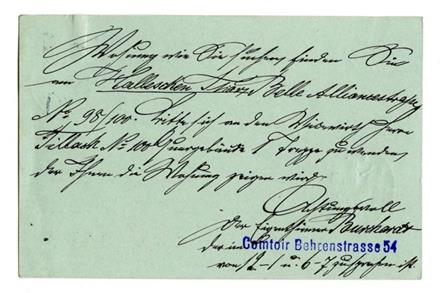 Wohnung wie Sie suchen finden Sie
am Halleschen Thor, Belle Alliancestrasse
No. 98/100. Bitte sich an den Vicewirth Herrn
No 100 1 Treppe zu wenden
der Ihnen die Wohnung zeigen wird
Achtungsvoll
Der Eigenthümer Burchardt
der im
Comtoir Behrenstrasse 54
von 12-1 u. 6-7 zu sprechen ist.